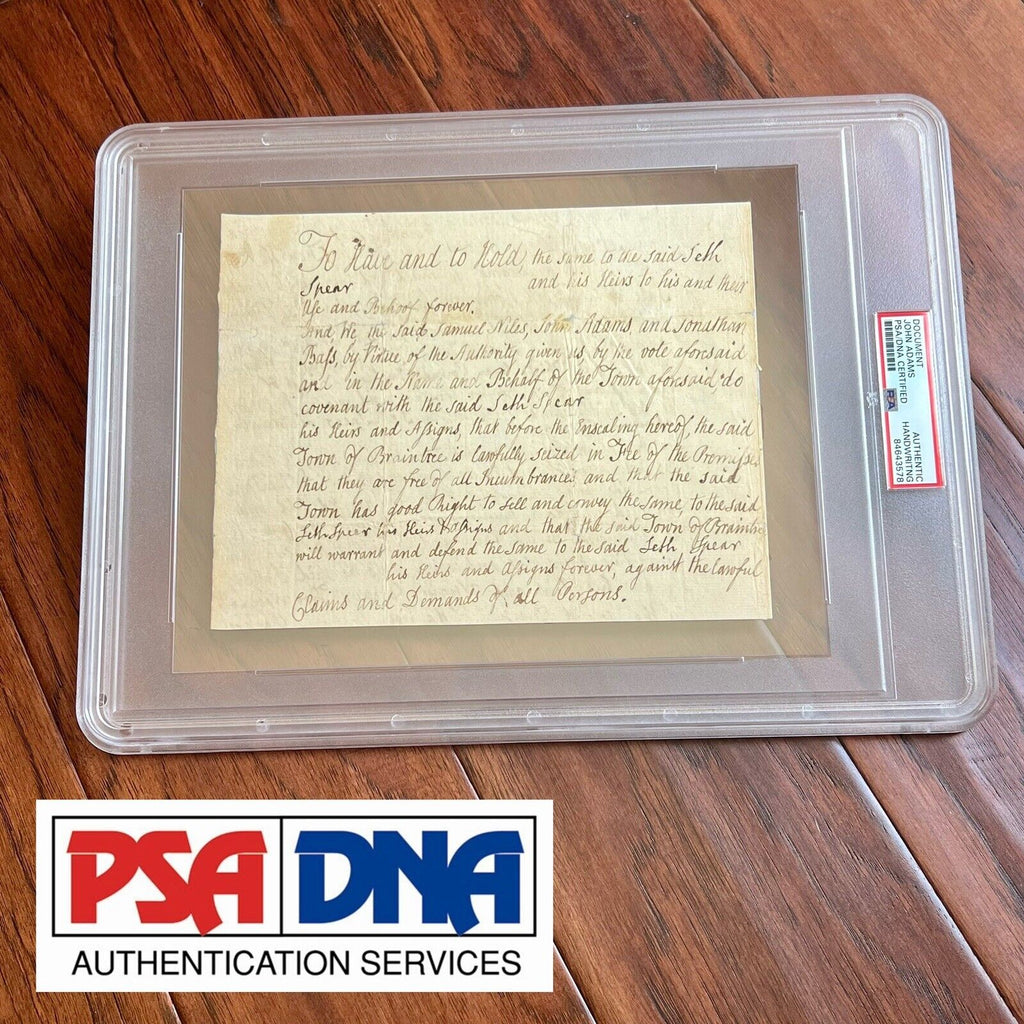 To Have and to Hold, the same to the said Seth
Spear and his Heirs to his and their
Use and Behoof forever.
And We the said Samuel Niles, John Adams, and Jonathan
Bass, by Virtue of the Authority given us, by the vote aforesaid
and in the Name and Behalf of the Town aforesaid do
covenant with the said Seth Spear
his Heirs and Assigns, that before the Ensealing hereof, the said
Town of Braintree is lawfully seized in Fee of the Premises
that they are free of all Incumbrances and that the said
Town has good Right to sell and convey the same, to the said
Seth Spear his Heirs & Assigns and that the said Town of Braintree
will warrant and defend the same to the said Seth Spear
his Heirs and Assigns forever, against the lawful
Claims and Demands of all Persons.
DOCUMENT
JOHN ADAMS
PSA/DNA CERTIFIED
AUTHENTIC
HANDWRITNG
84643578
PSA DNA
AUTHENTICATION SERVICES